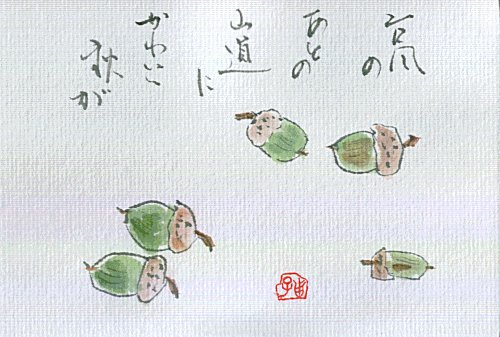 台風の
あとの
山道に
かわいい
秋が